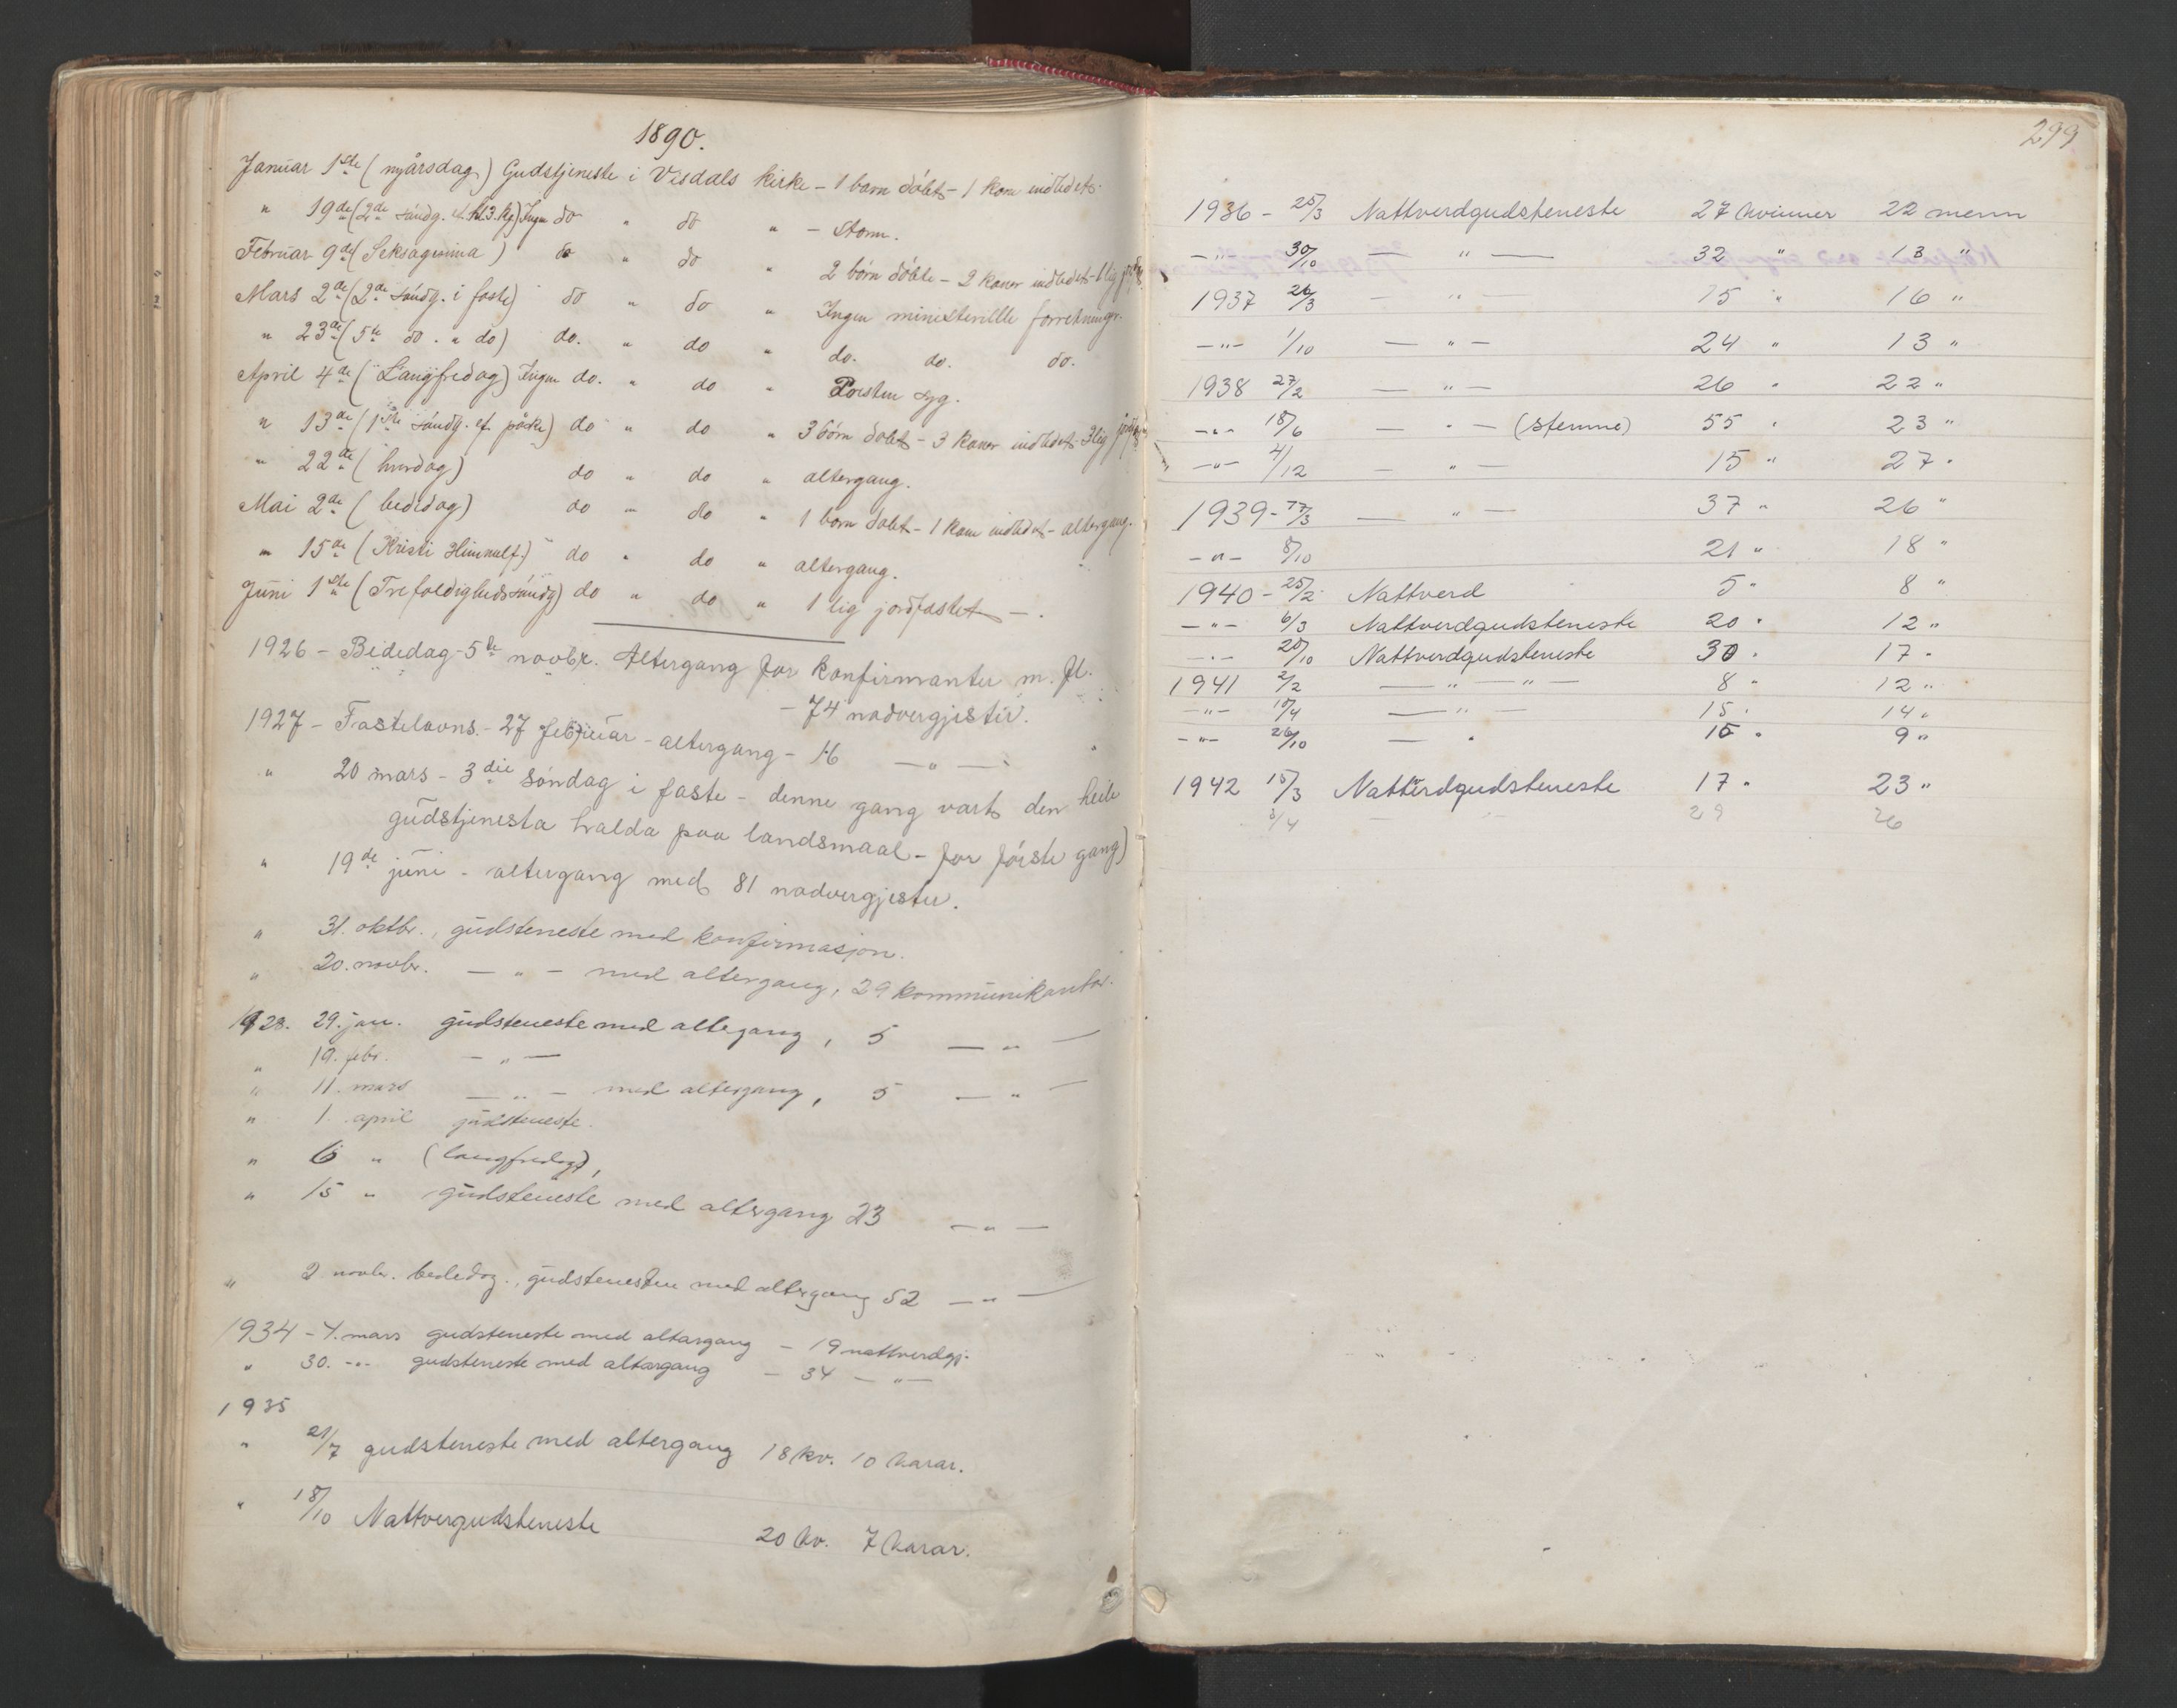 1890.
Januar 1ste (nyårsdag) Gudstjeneste i Visdals kirke – 1 barn döbt – 1 kone indledet.
" 19de (2de söndg. ef. h.3.kg) Ingen do " do " – Storm.
Februar 9de (Seksagesima) do " do " 2 börn döbte – 2 koner indledet – 1 lig
Mars 2de (2de söndg. i faste) do " do " Ingen ministerielle forretninger.
" 23de (5te do. " do) do. " do " do. do. do.
April 4de (Langfredag) Ingen do. " do " Presten syg.
" 13de (1ste söndg. ef. påske) do " do " 3 börn döbt – 3 koner indledet – 3 lig
" 22de (hverdag) do " do " altergang.
Mai 2de (bededag) do " do " 1 barn döbt – 1 kone indledet – altergang.
" 15de (Kristi Himmelf.) do " do " altergang.
Juni 1ste (Trefoldighedssöndg) do " do " 1 lig jordfastet – .
1926 – Bededag – 5te novbr. Altergang for konfirmanter m. fl.
– 74 nadvergjester.
1927 – Fastelavns. – 27 februar – altergang – 16 – " –
" 20 mars – 3die söndag i faste – denne gang varts den heile
gudstjenesta halda paa landsmaal – for förste gang)
" 19de juni – altergang med 81 nadvergjester.
" 31. oktbr., gudsteneste med konfirmasjon.
" 20. novbr. – " – med altergang, 29 kommunikantar.
1928. 29. jan. gudsteneste med altegang, 5 – " –
" 19. febr. – " –
" 11. mars – " – med altergang, 5 – " –
" 1. april gudsteneste.
" 6 " (langfredag),
" 15 " gudsteneste med altergang 23 – " –
" 2 novbr. bededag., gudstenesten med altergang 52 – " –
1934 – 4. mars gudsteneste med altargang – 19 nattverdgj.
" 30. – " – gudsteneste med altargang – 34 – " –
1935
" 21/7 gudsteneste med altergang 18 kv. 10 karar.
" 18/10 Nattvergudsteneste 20 kv. 7 karar.
299
1936 – 25/3 Nattverdgudsteneste 27 kvinner 22 menn
– " – 30/10 – " – 32 " 13 "
1937 26/3 – " – 15 " 16 "
– " – 1/10 – " – 24 " 13 "
1938 27/2 – " – 26 " 22 "
– " – 18/6 – " – (stemne) 55 " 23 "
– " – 4/12 – " – 15 " 27 "
1939 – 17/3 – " – 37 " 26 "
– " – 8/10 21 " 18 "
1940 – 25/2 Nattverd 5 " 8 "
– " – 6/3 Nattverdgudsteneste 20 " 12 "
– " – 20/10 Nattverdgudsteneste 30 " 17 "
1941 2/2 – " – " – 8 " 12 "
– " – 10/4 – " – 15 " 14 "
– " – 26/10 – " 15 " 9 "
1942 15/3 Nattverdgudsteneste 17 " 23 "
3/4 – " – 29 26